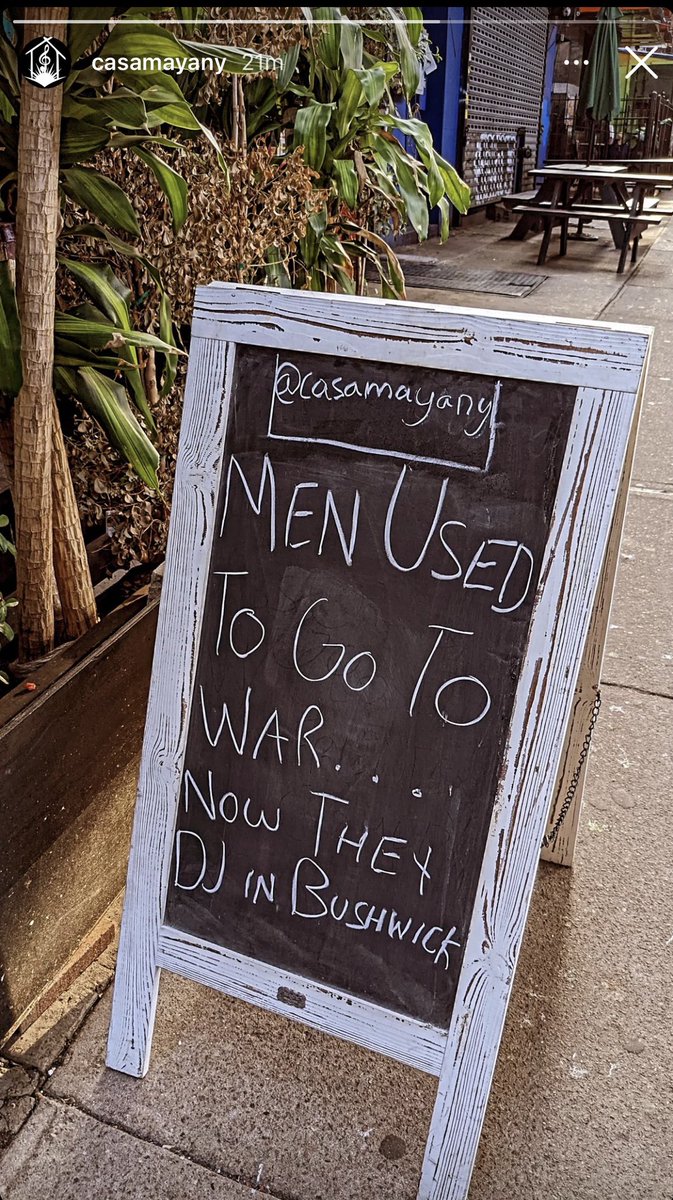 casamayany 21m
@casamayany
MEN USED
TO GO TO
WAR....
NOW THEY
DJ IN BUSHWICK